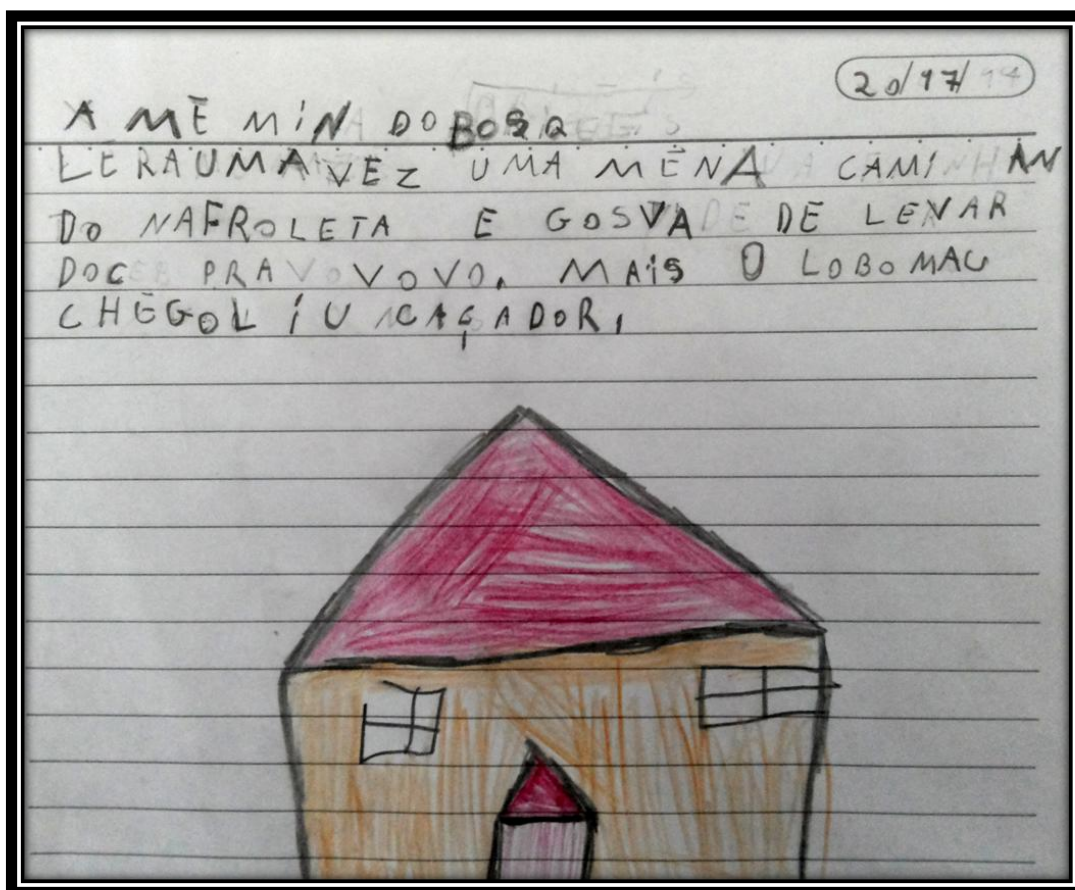 20/17/
A MĒ MiN DO BOSQ
ERAUMA VEZ UMA MĒNA CAMINHAN
DO NAFROLETA E GOSVA DE LEVAR
DOC PRA VOVO. MAiS O LOBO MAU
CHĒGOL i U CAÇADOR,